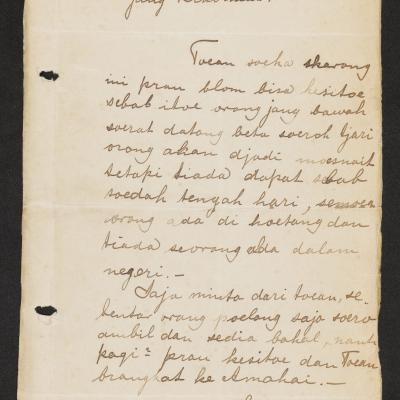 Toean soeka skarang
ini prau blom bisa kesitoe
sebab itoe orang jang bawah
soerat datang beta soeroh tjari
orang akan djadi masnait
tetapi tiada dapat sebab
soedah tengah hari, semoea
orang ada di hoetang dan
tiada seorang ada dalam
negeri. –
Saja minta dari toean, se-
bentar orang poelang saja soero
ambil dan sedia bakal, nanti
pagi² prau kesitoe dan Toean
brangkat ke Amahai. –